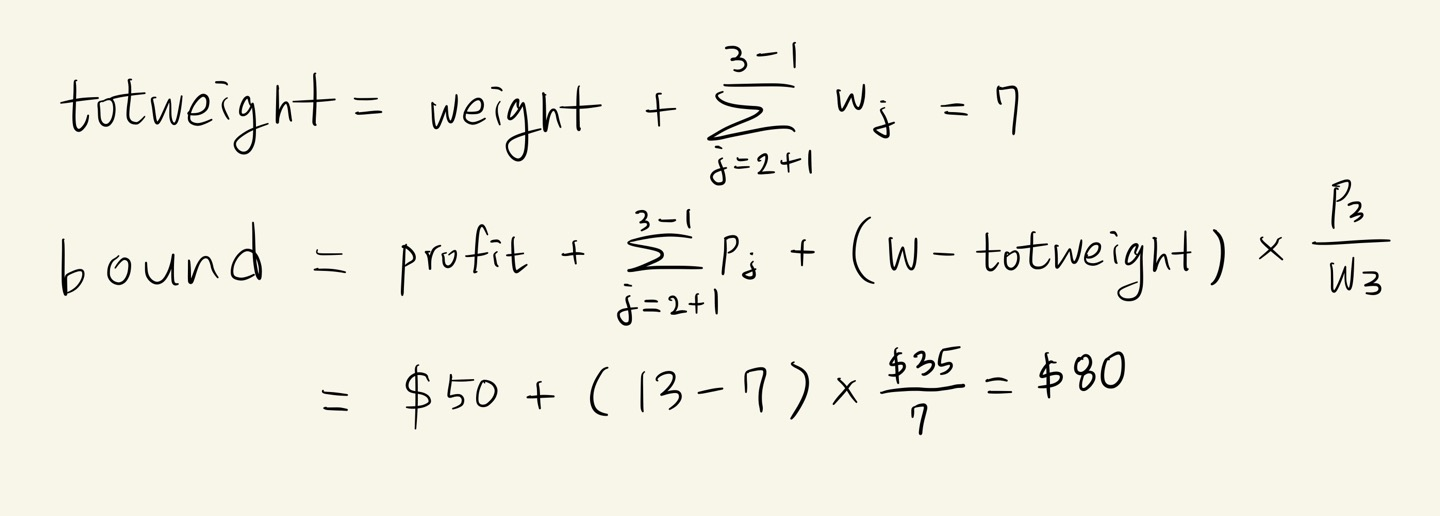 totweight = weight + \sum_{j=2+1}^{3-1} w_j = 7
bound = profit + \sum_{j=2+1}^{3-1} P_j + (W - totweight) × \frac{P_3}{W_3}
= $50 + (13 - 7) × \frac{$35}{7} = $80